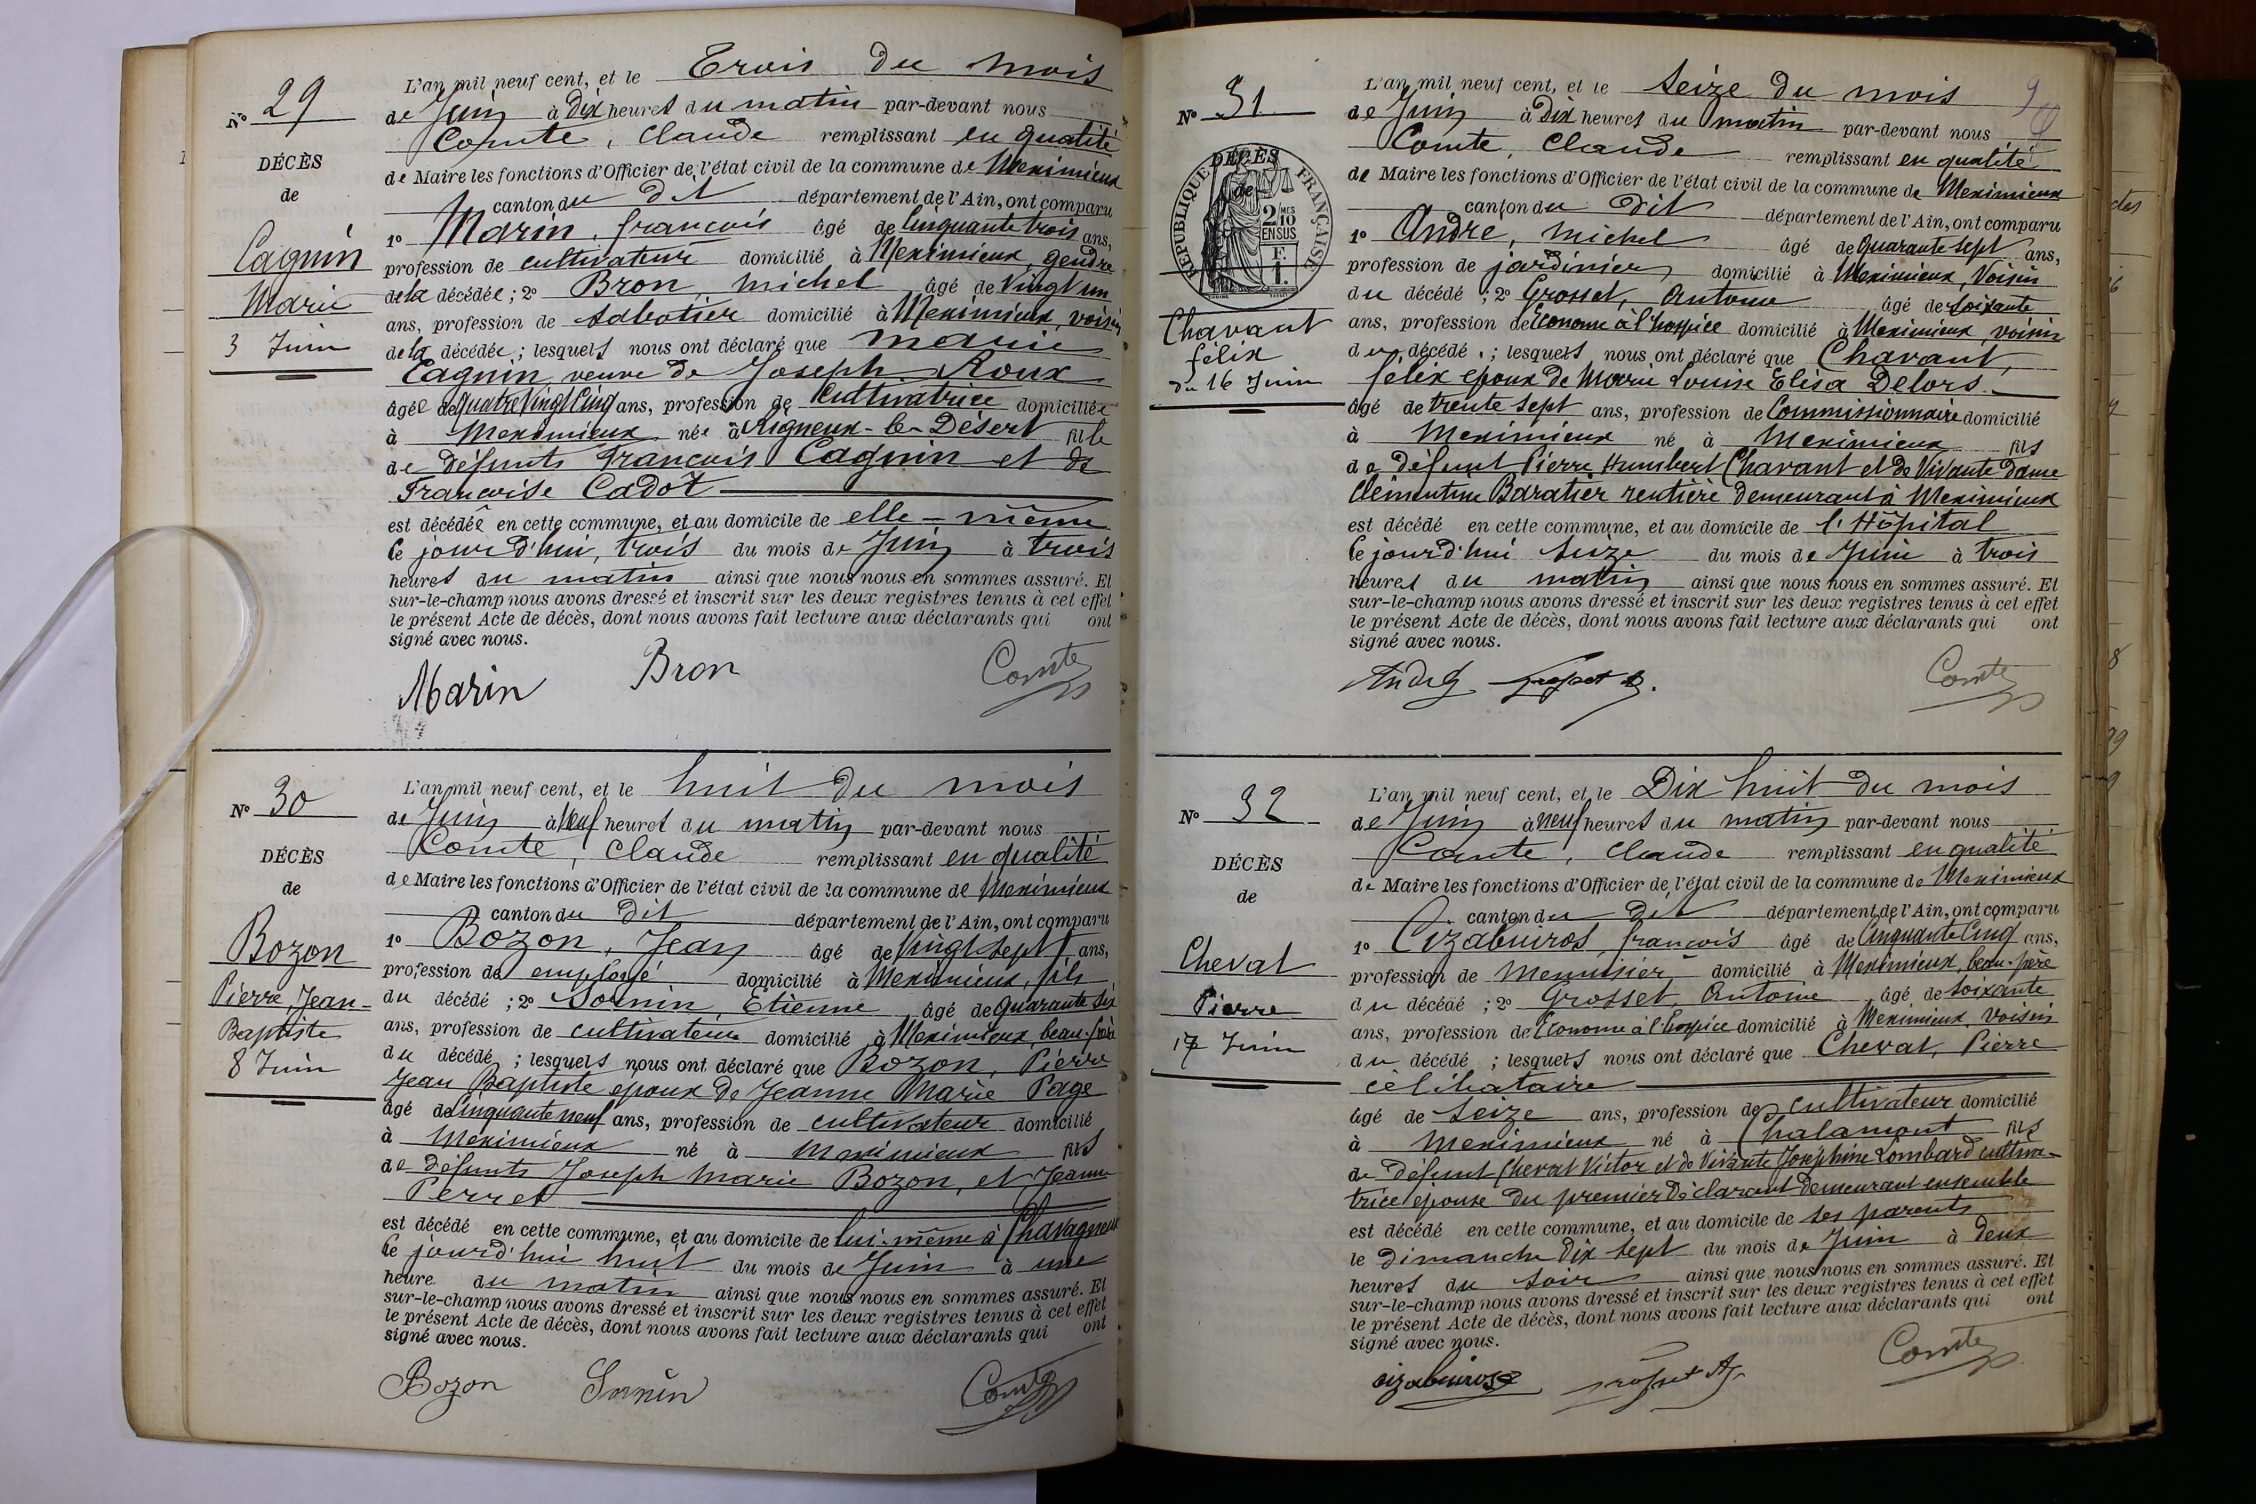 N° 29
DÉCÈS
de
Cagnin
Marie
3 Juin
L'an mil neuf cent, et le Trois du mois
de Juin à Dix heures du matin par-devant nous
Comte, Claude remplissant en qualité
de Maire les fonctions d'Officier de l'état civil de la commune de Meximieux
canton du dit département de l'Ain, ont comparu
1° Marin, françois âgé de Cinquante trois ans,
profession de cultivateur domicilié à Meximieux, gendre
de la décédée ; 2° Bron, michel âgé de Vingt un
ans, profession de sabotier domicilié à Meximieux, voisin
de la décédée ; lesquels nous ont déclaré que Marie
Cagnin veuve de Joseph Roux
âgée de Quatre Vingt Cinq ans, profession de Cultivatrice domiciliée
à Meximieux née à Rigneux-le-Désert fille
de défunts François Cagnin et de
Françoise Cadot
est décédée en cette commune, et au domicile de elle-même
le jourd'hui, trois du mois de Juin à trois
heures du matin ainsi que nous nous en sommes assuré. Et
sur-le-champ nous avons dressé et inscrit sur les deux registres tenus à cet effet
le présent Acte de décès, dont nous avons fait lecture aux déclarants qui ont
signé avec nous.
Marin Bron Comte
N° 30
DÉCÈS
de
Bozon
Pierre Jean-
Baptiste
8 Juin
L'an mil neuf cent, et le huit du mois
de Juin à Neuf heures du matin par-devant nous
Comte, Claude remplissant en qualité
de Maire les fonctions d'Officier de l'état civil de la commune de Meximieux
canton du dit département de l'Ain, ont comparu
1° Bozon, Jean âgé de Vingt sept ans,
profession de employé domicilié à Meximieux, fils
du décédé ; 2° Sornin, Etienne âgé de Quarante six
ans, profession de cultivateur domicilié à Meximieux, beau-frère
du décédé ; lesquels nous ont déclaré que Bozon, Pierre
Jean Baptiste epoux de Jeanne Marie Page
âgé de Cinquante neuf ans, profession de cultivateur domicilié
à Meximieux né à Meximieux fils
de défunts Joseph Marie Bozon, et Jeanne
Perret
est décédé en cette commune, et au domicile de lui-même à Chavagneux
le jourd'hui huit du mois de Juin à une
heure du matin ainsi que nous nous en sommes assuré. Et
sur-le-champ nous avons dressé et inscrit sur les deux registres tenus à cet effet
le présent Acte de décès, dont nous avons fait lecture aux déclarants qui ont
signé avec nous.
Bozon Sornin Comte
9
N° 31
DÉCÈS
de
RÉPUBLIQUE FRANÇAISE
2 MES
10
EN SUS
Chavant
félix
du 16 Juin
L'an mil neuf cent, et le Seize du mois
de Juin à Dix heures du matin par-devant nous
Comte, Claude remplissant en qualité
de Maire les fonctions d'Officier de l'état civil de la commune de Meximieux
canton du dit département de l'Ain, ont comparu
1° André, michel âgé de Quarante sept ans,
profession de jardinier domicilié à Meximieux, Voisin
du décédé ; 2° Grosset, Antoine âgé de soixante
ans, profession de Econome à l'hospice domicilié à Meximieux, voisin
du décédé ; lesquels nous ont déclaré que Chavant,
félix epoux de Marie Louise Elisa Delors.
âgé de trente sept ans, profession de Commissionnaire domicilié
à Meximieux né à Meximieux fils
de défunt Pierre Humbert Chavant et de Vivante Dame
Clémentine Baratier rentière demeurant à Meximieux
est décédé en cette commune, et au domicile de l'Hôpital
le jourd'hui seize du mois de Juin à trois
heures du matin ainsi que nous nous en sommes assuré. Et
sur-le-champ nous avons dressé et inscrit sur les deux registres tenus à cet effet
le présent Acte de décès, dont nous avons fait lecture aux déclarants qui ont
signé avec nous.
André Grosset A. Comte
N° 32
DÉCÈS
de
Cheval
Pierre
17 Juin
L'an mil neuf cent, et le Dix huit du mois
de Juin à neuf heures du matin par-devant nous
Comte, Claude remplissant en qualité
de Maire les fonctions d'Officier de l'état civil de la commune de Meximieux
canton du dit département de l'Ain, ont comparu
1° Cizabuiros, françois âgé de Cinquante Cinq ans,
profession de Menuisier domicilié à Meximieux, beau-père
du décédé ; 2° Grosset, Antoine âgé de soixante
ans, profession de Econome à l'hospice domicilié à Meximieux, voisin
du décédé ; lesquels nous ont déclaré que Cheval, Pierre
célibataire
âgé de seize ans, profession de cultivateur domicilié
à Meximieux né à Chalamont fils
de défunt Cheval Victor et de Vivante Joséphine Lombard cultiva-
trice epouse du premier Déclarant demeurant ensemble
est décédé en cette commune, et au domicile de ses parents
le dimanche Dix sept du mois de Juin à deux
heures du soir ainsi que nous nous en sommes assuré. Et
sur-le-champ nous avons dressé et inscrit sur les deux registres tenus à cet effet
le présent Acte de décès, dont nous avons fait lecture aux déclarants qui ont
signé avec nous.
cizabuiros Grosset A. Comte